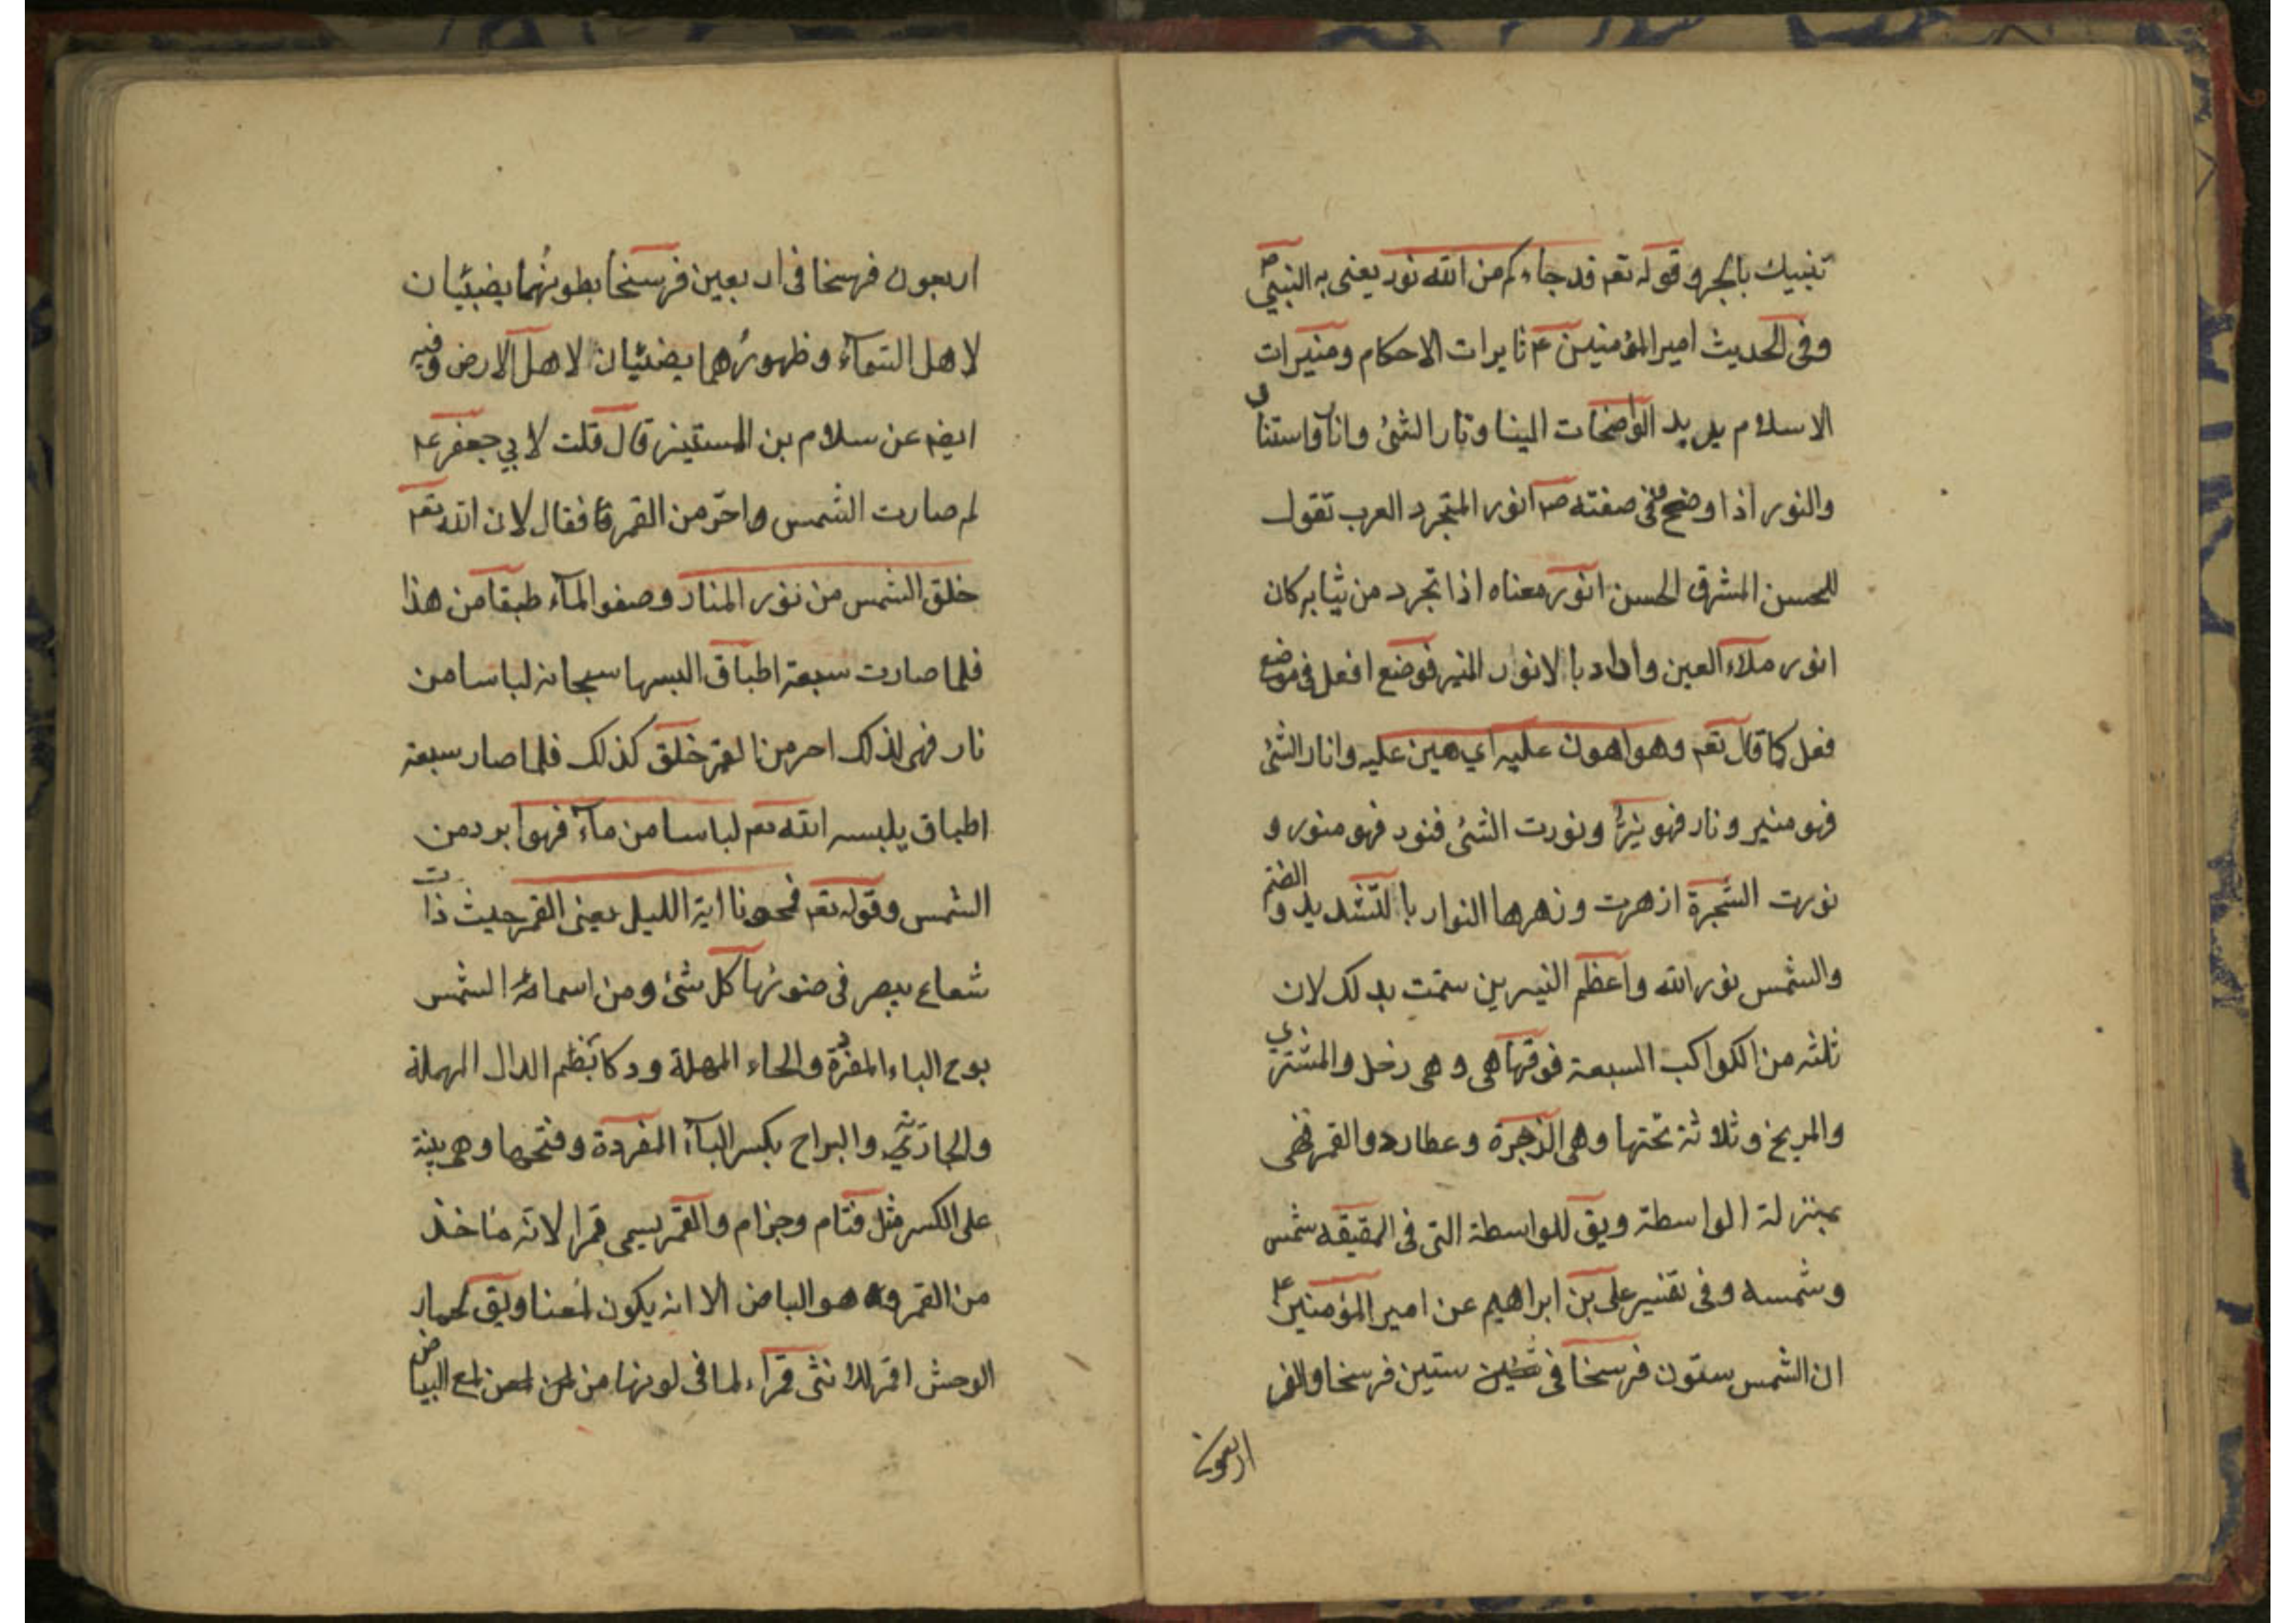 تنبيك بالجر وقوله تعم قد جاءكم من الله نور يعنى به النبي ص
وفى الحديث امير المؤمنين ع نايرات الاحكام ومنيرات
الاسلام يريد الواضحات البينا ونار الشئ وانار واستنا
والنور اذا وضح ففى صفته ص انور المتجرد العرب تقول
للحسن المشرق الحسن انور معناه اذا تجرد من ثيابه كان
انور ملاء العين واراد بالانوار المنير فوضع افعل فى موضع
فعل كما قال تعم وهو اهون عليه اي هين عليه وانار الشئ
فهو منير ونار فهو نيرا ونورت الشئ فنور فهو منور و
نورت الشجرة ازهرت وزهرها النوار بالتشديد والضم
والشمس نور الله واعظم النيرين سمت بدلك لان
ثلثه من الكواكب السبعة فوقها هى وهى زحل والمشتري
والمريخ وثلاثة تحتها وهى الزجرة وعطارد والقمر فهى
بمنزلة الواسطة ويق للواسطة التى فى المقيقه شمس
وشمسه وفى تفسير على بن ابراهيم عن امير المؤمنين ع
ان الشمس ستون فرسخا فى ستين فرسخا والقمر
اربعون
اربعون فرسخا فى اربعين فرسخا بطونهما يضيئان
لاهل السمآء وظهورهما يضئيان لاهل الارض وفيه
ايضه عن سلام بن المستينر قال قلت لابي جعفر ع
لم صارت الشمس احرّ من القمر فقال لان الله تعم
خلق الشمس من نور النار وصفو المآء طبقا من هذا
فلما صارت سبعة اطباق البسها سبحانه لباسا من
نار فهى لذلك احر من القمر خلق كذلك فلما صار سبعة
اطباق يلبسه الله تعم لباسا من مآء فهو ابرد من
الشمس وقوله تعم فمحونا اية الليل يعنى القمر حيث ذات
شعاع يبصر فى ضوئها كل شئ ومن اسمائه الشمس
بوح الباء المفردة والحاء المهملة ودكا بضم الدال المهملة
والجارية والبراح بكسر البآء المفردة وفتحها وهى بنية
على الكسر مثل قتام وجزام والقمر يسمى قمرا لانه ماخذ
من القمر وهو البياض الا انه يكون ويق لحمار
الوحش اقمر للانثى قمراء لما فى لونها من البياض